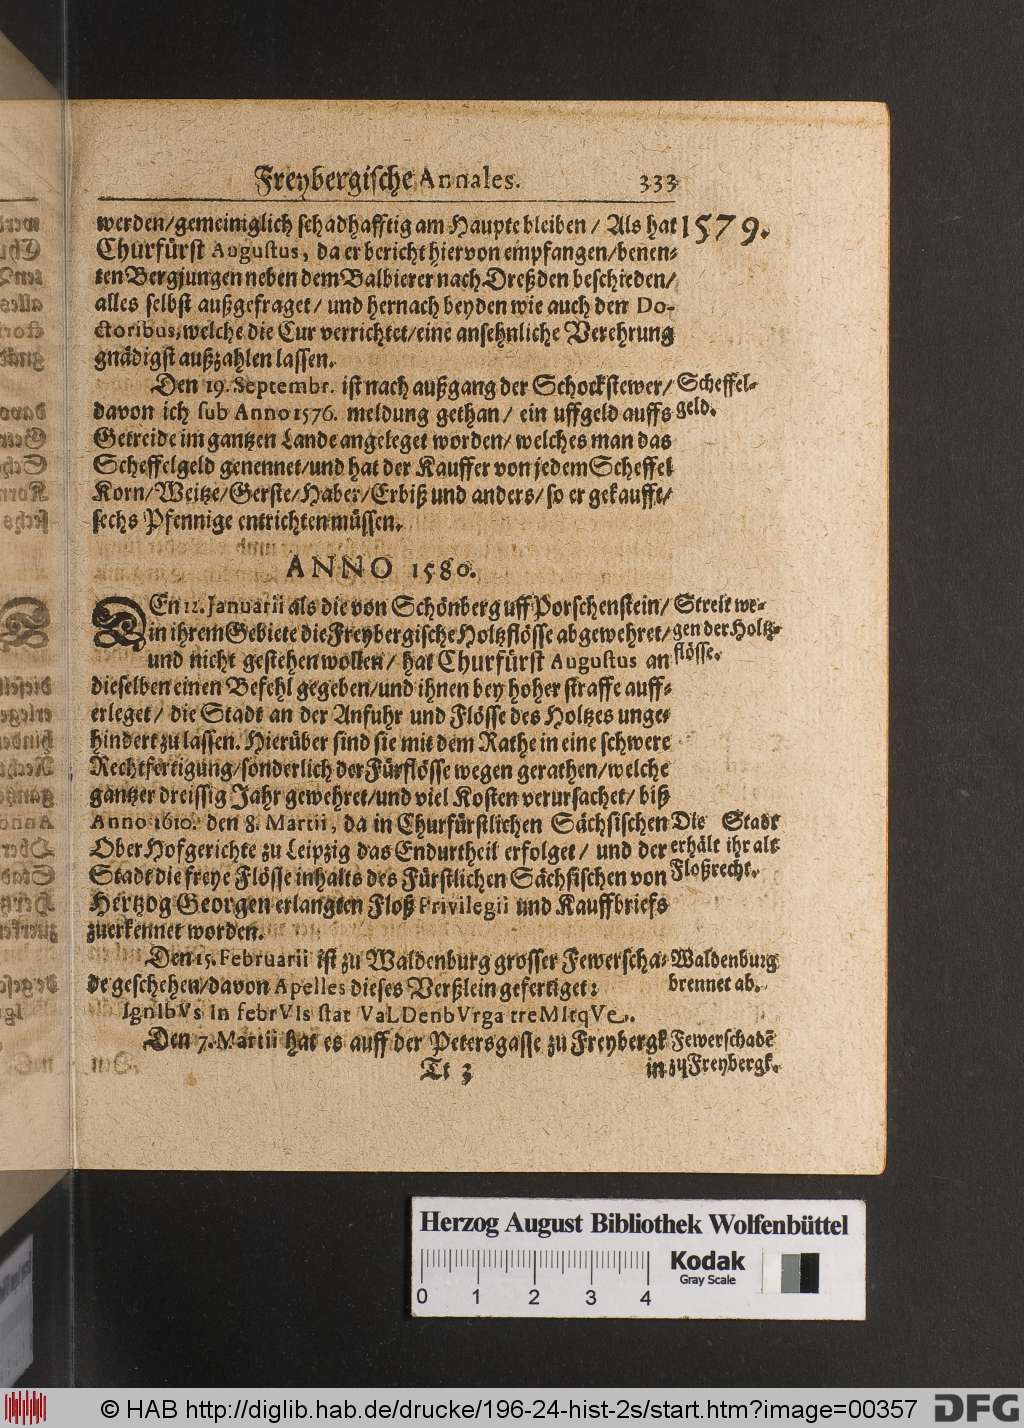 Freybergische Annales. 333
werden/gemeiniglich schadhafftig am Haupte bleiben / Als hat 1579.
Churfürst Augustus, da er bericht hiervon empfangen/benen-
ten Bergjungen neben dem Balbierer nach Dreßden beschieden/
alles selbst außgefraget / und hernach beyden wie auch den Do-
ctoribus, welche die Cur verrichtet/eine ansehnliche Verehrung
gnädigst außzahlen lassen.
Den 19. Septembr. ist nach außgang der Schockstewer/ Scheffel-
davon ich sub Anno 1576. meldung gethan / ein uffgeld auffs geld.
Getreide im gantzen Lande angeleget worden/ welches man das
Scheffelgeld genennet/und hat der Kauffer von jedem Scheffel
Korn/Weitze/Gerste/Haber/Erbiß und anders/ so er gekaufft/
sechs Pfennige entrichten müssen.
ANNO 1580.
DEn 12. Januarii als die von Schönberg uff Porschenstein/ Streit we-
in ihrem Gebiete die Freybergische Holtzflösse abgewehret/ gen der Holtz-
und nicht gestehen wollen / hat Churfürst Augustus an flösse.
dieselben einen Befehl gegeben/und ihnen bey hoher straffe auff-
erleget / die Stadt an der Anfuhr und Flösse des Holtzes unge-
hindert zu lassen. Hierüber sind sie mit dem Rathe in eine schwere
Rechtfertigung/sonderlich der Fürflösse wegen gerathen/welche
gantzer dreissig Jahr gewehret/und viel Kosten verursachet/ biß
Anno 1610. den 8. Martii, da in Churfürstlichen Sächsischen Die Stadt
Ober Hofgerichte zu Leipzig das Endurtheil erfolget / und der erhält ihr alt
Stadt die freye Flösse inhalts des Fürstlichen Sächsischen von Floßrecht.
Hertzog Georgen erlangten Floß Privilegii und Kauffbriefs
zuerkennet worden.
Den 15. Februarii ist zu Waldenburg grosser Fewerscha- Waldenburg
de geschehen/davon Apelles dieses Verßlein gefertiget: brennet ab.
IgnIbVs In febrVIs stat VaLDenbVrga treMItqVe.
Den 7. Martii hat es auff der Petersgasse zu Freybergk Fewerschadē
Tt 3 in zu Freybergk.
Herzog August Bibliothek Wolfenbüttel
Kodak
Gray Scale
0 1 2 3 4
© HAB http://diglib.hab.de/drucke/196-24-hist-2s/start.htm?image=00357
DFG